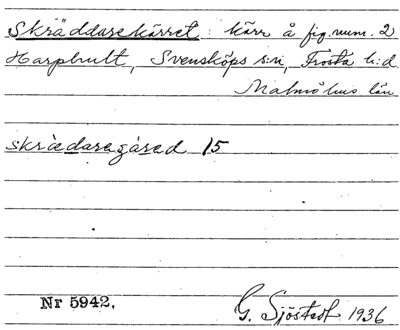 Skräddarekärret: kärr å fig.num. 2
Harphult, Svensköps s:n, Frosta h:d
Malmöhus län
skrædaragárad 15
Nr 5942.
G. Sjöstedt 1936